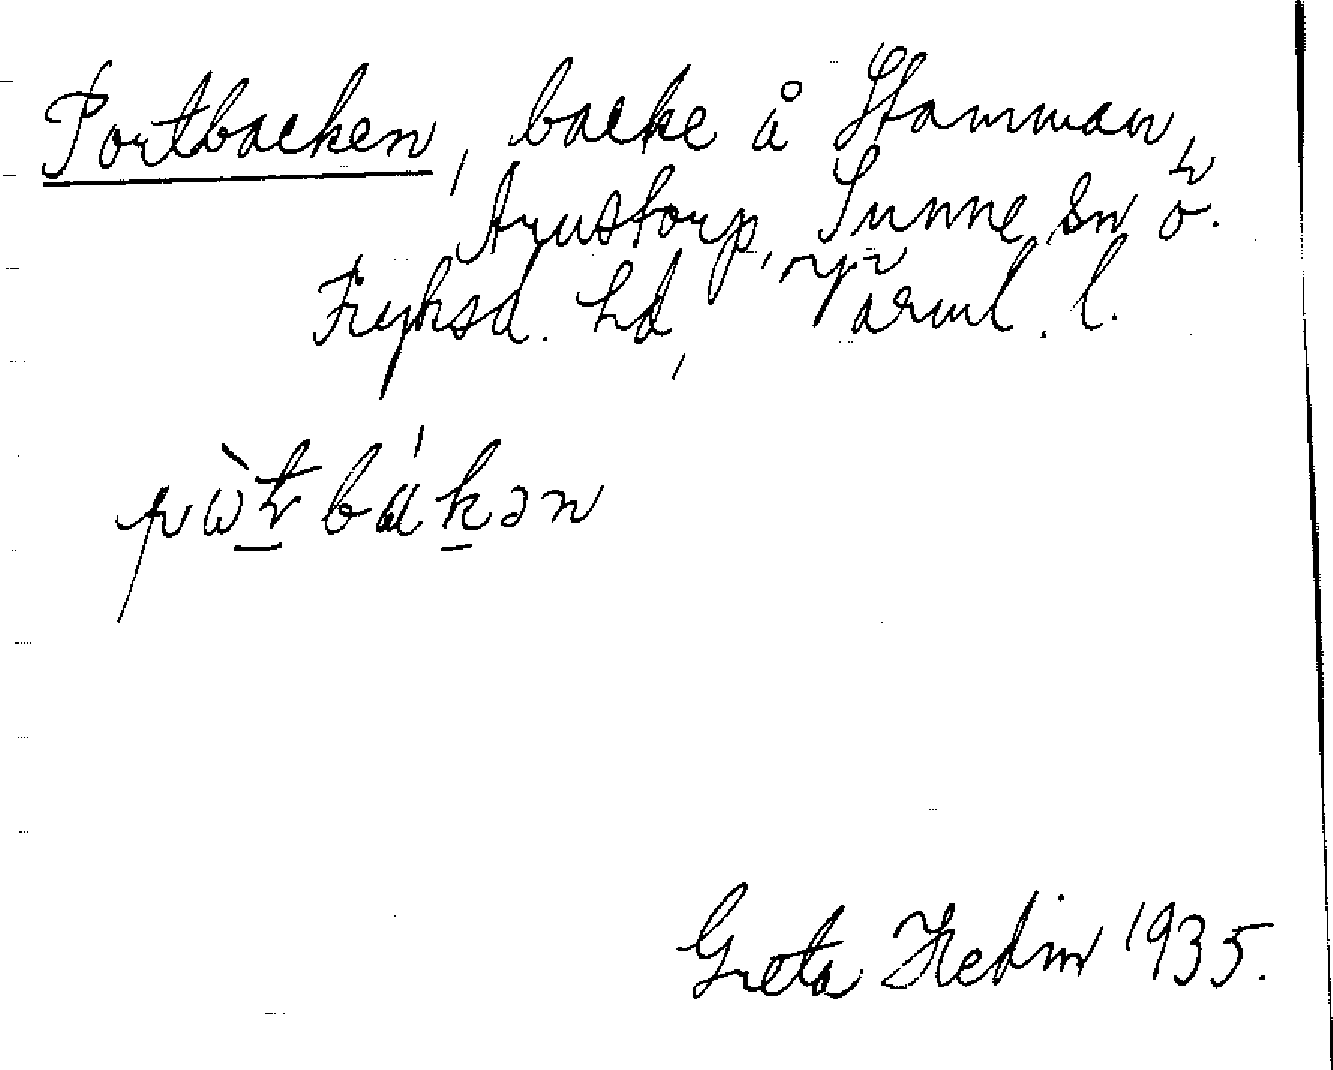 Portbacken, backe å Stamman,
Arnstorp, Sunne sn ö.
Fryksd. hd, Värml. l.
pὼt̠bákən
Greta Hedin 1935.